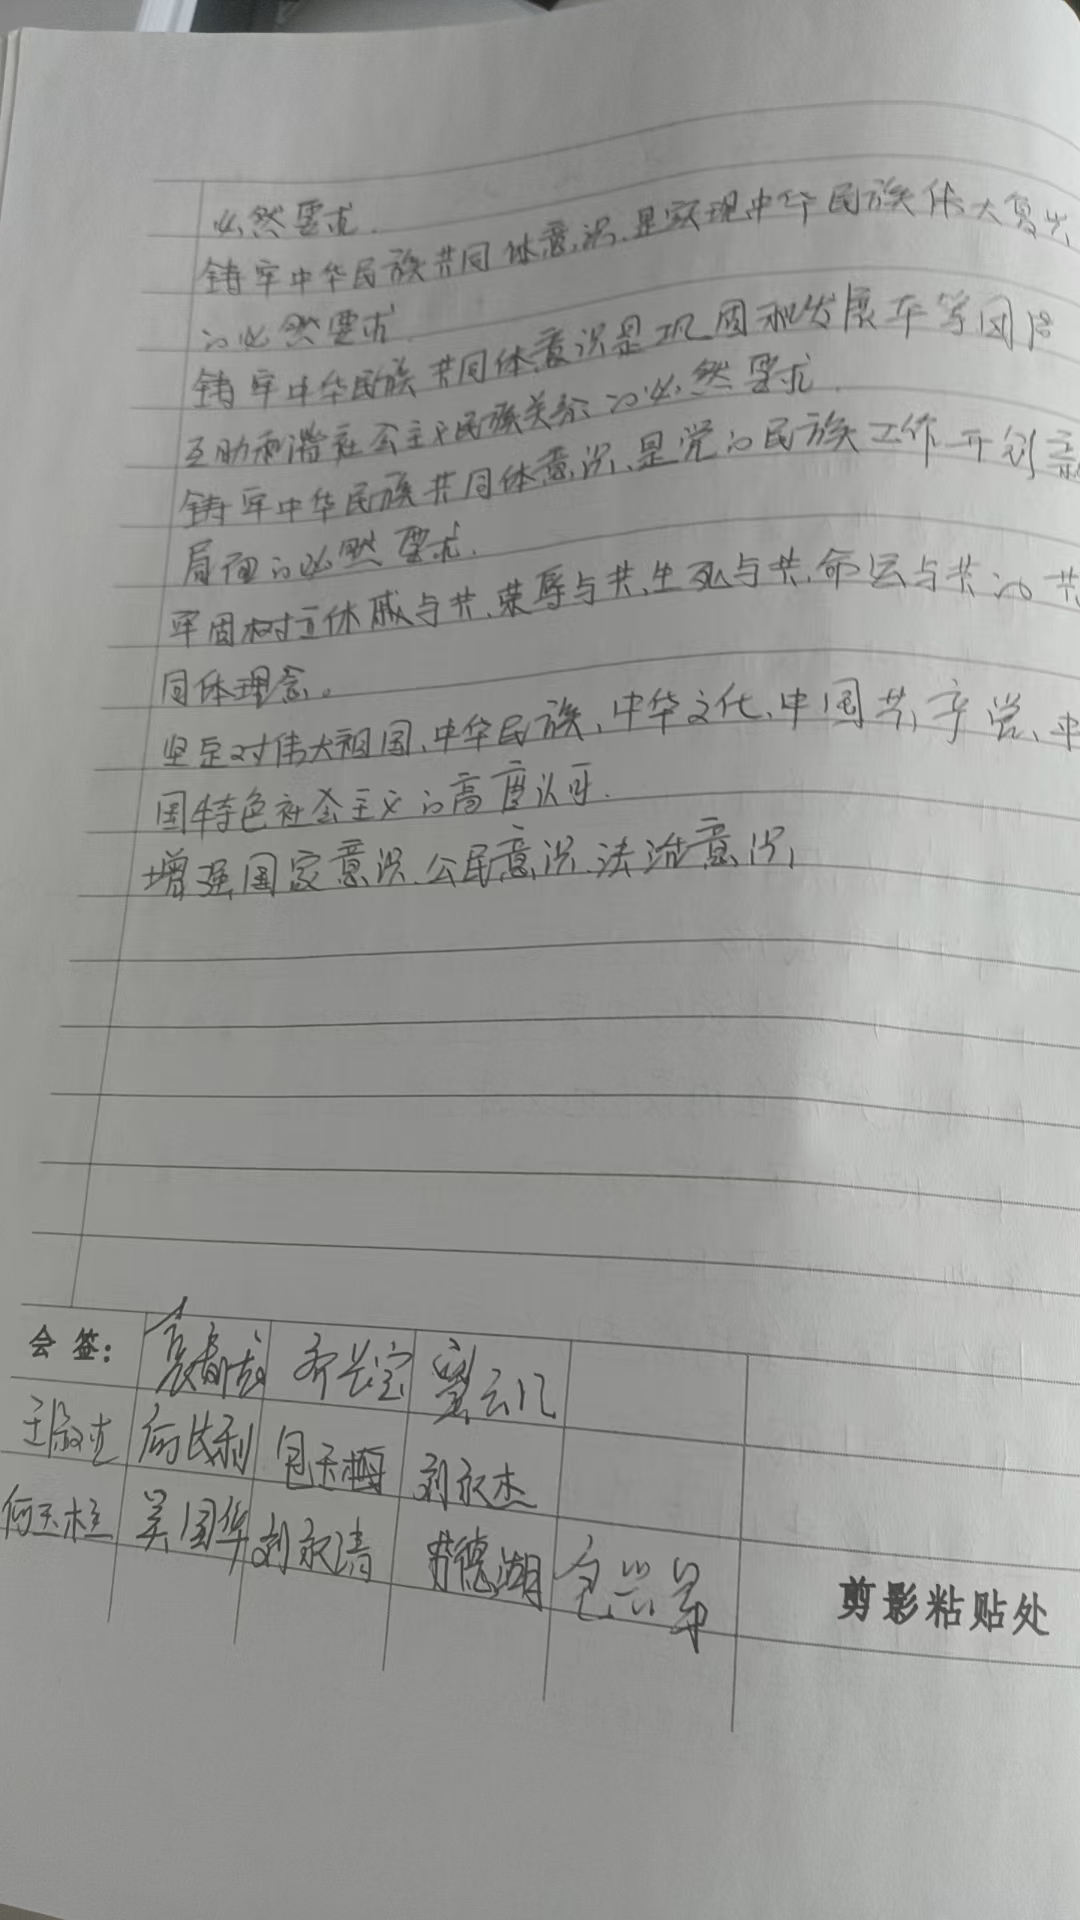 必然要求.
铸牢中华民族共同体意识.是实现中华民族伟大复兴
的必然要求.
铸牢中华民族共同体意识是巩固和发展平等团结
互助和谐社会主义民族关系的必然要求.
铸牢中华民族共同体意识、是党的民族工作开创新
局面的必然要求.
牢固树立休戚与共、荣辱与共、生死与共、命运与共的共
同体理念。
坚定对伟大祖国、中华民族、中华文化、中国共产党、中
国特色社会主义的高度认可.
增强国家意识、公民意识、法治意识,
会签:
包玉梅 刘永杰
何玉柱 吴国华 刘永清
剪影粘贴处